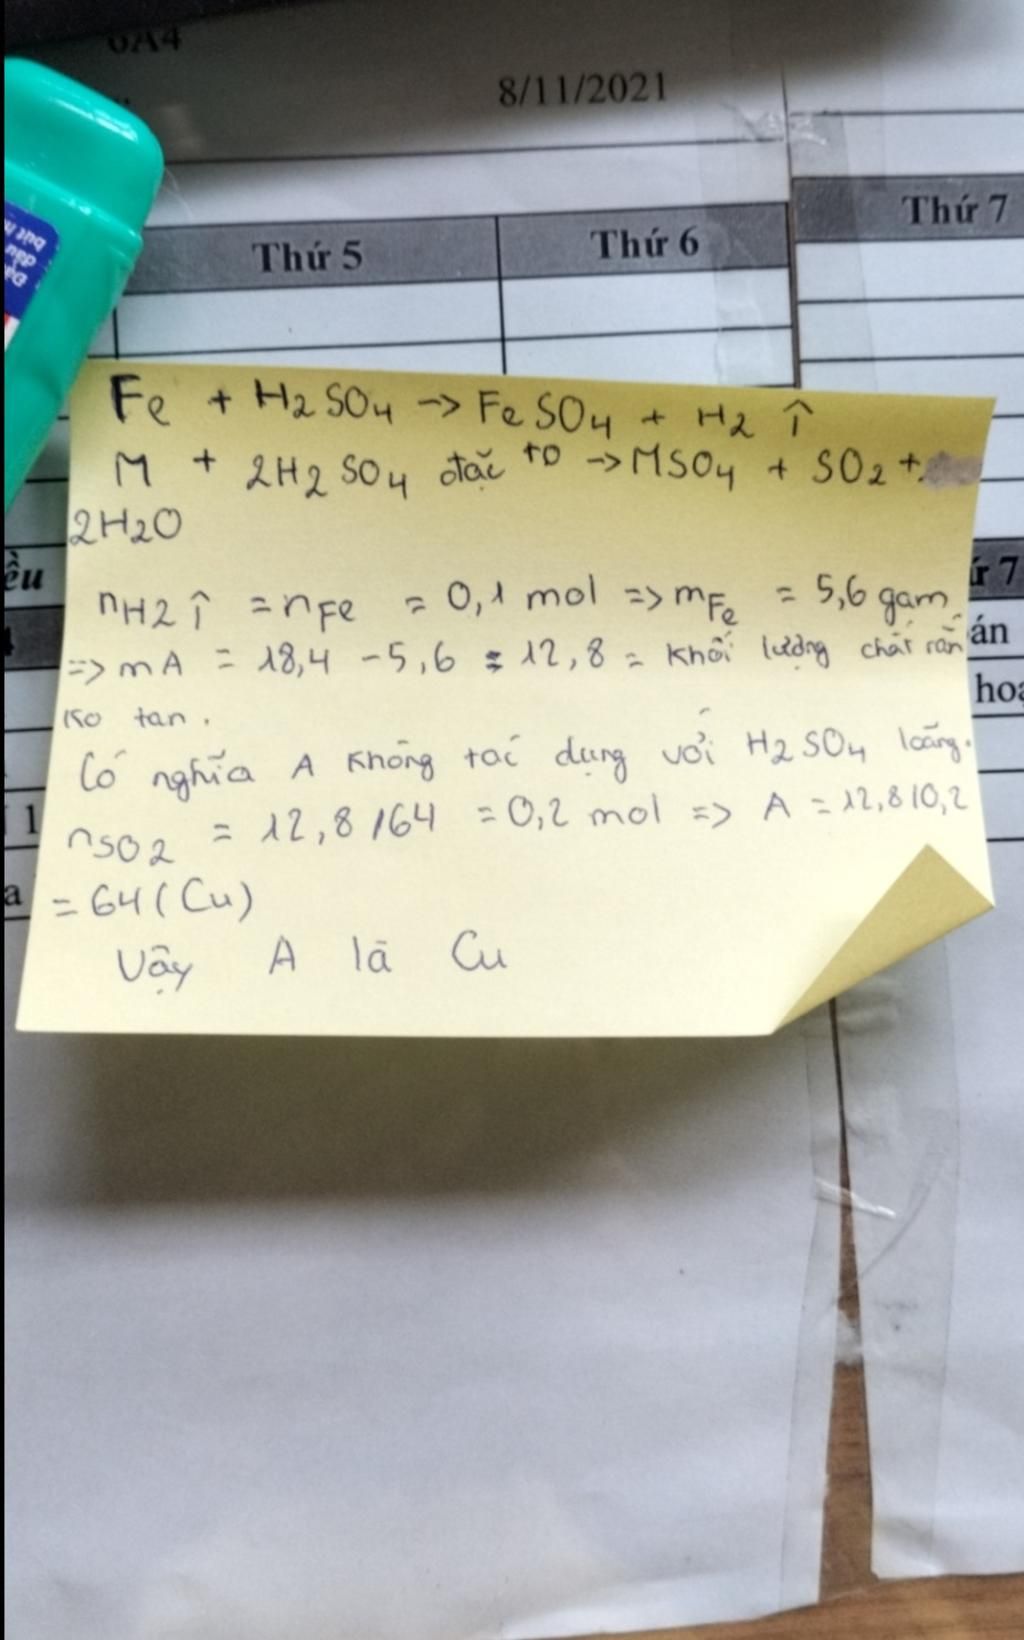 6A4
8/11/2021
Thứ 5
Thứ 6
Thứ 7
Fe + H2SO4 -> FeSO4 + H2 ↑
M + 2H2SO4 đặc to -> MSO4 + SO2 +
2H2O
nH2↑ = nFe = 0,1 mol => mFe = 5,6 gam
=> mA = 18,4 - 5,6 = 12,8 = khối lượng chất rắn
ko tan.
Có nghĩa A không tác dụng với H2SO4 loãng.
nSO2 = 12,8/64 = 0,2 mol => A = 12,8/0,2
= 64 (Cu)
Vậy A là Cu
ều
7
án
hoá
1
a